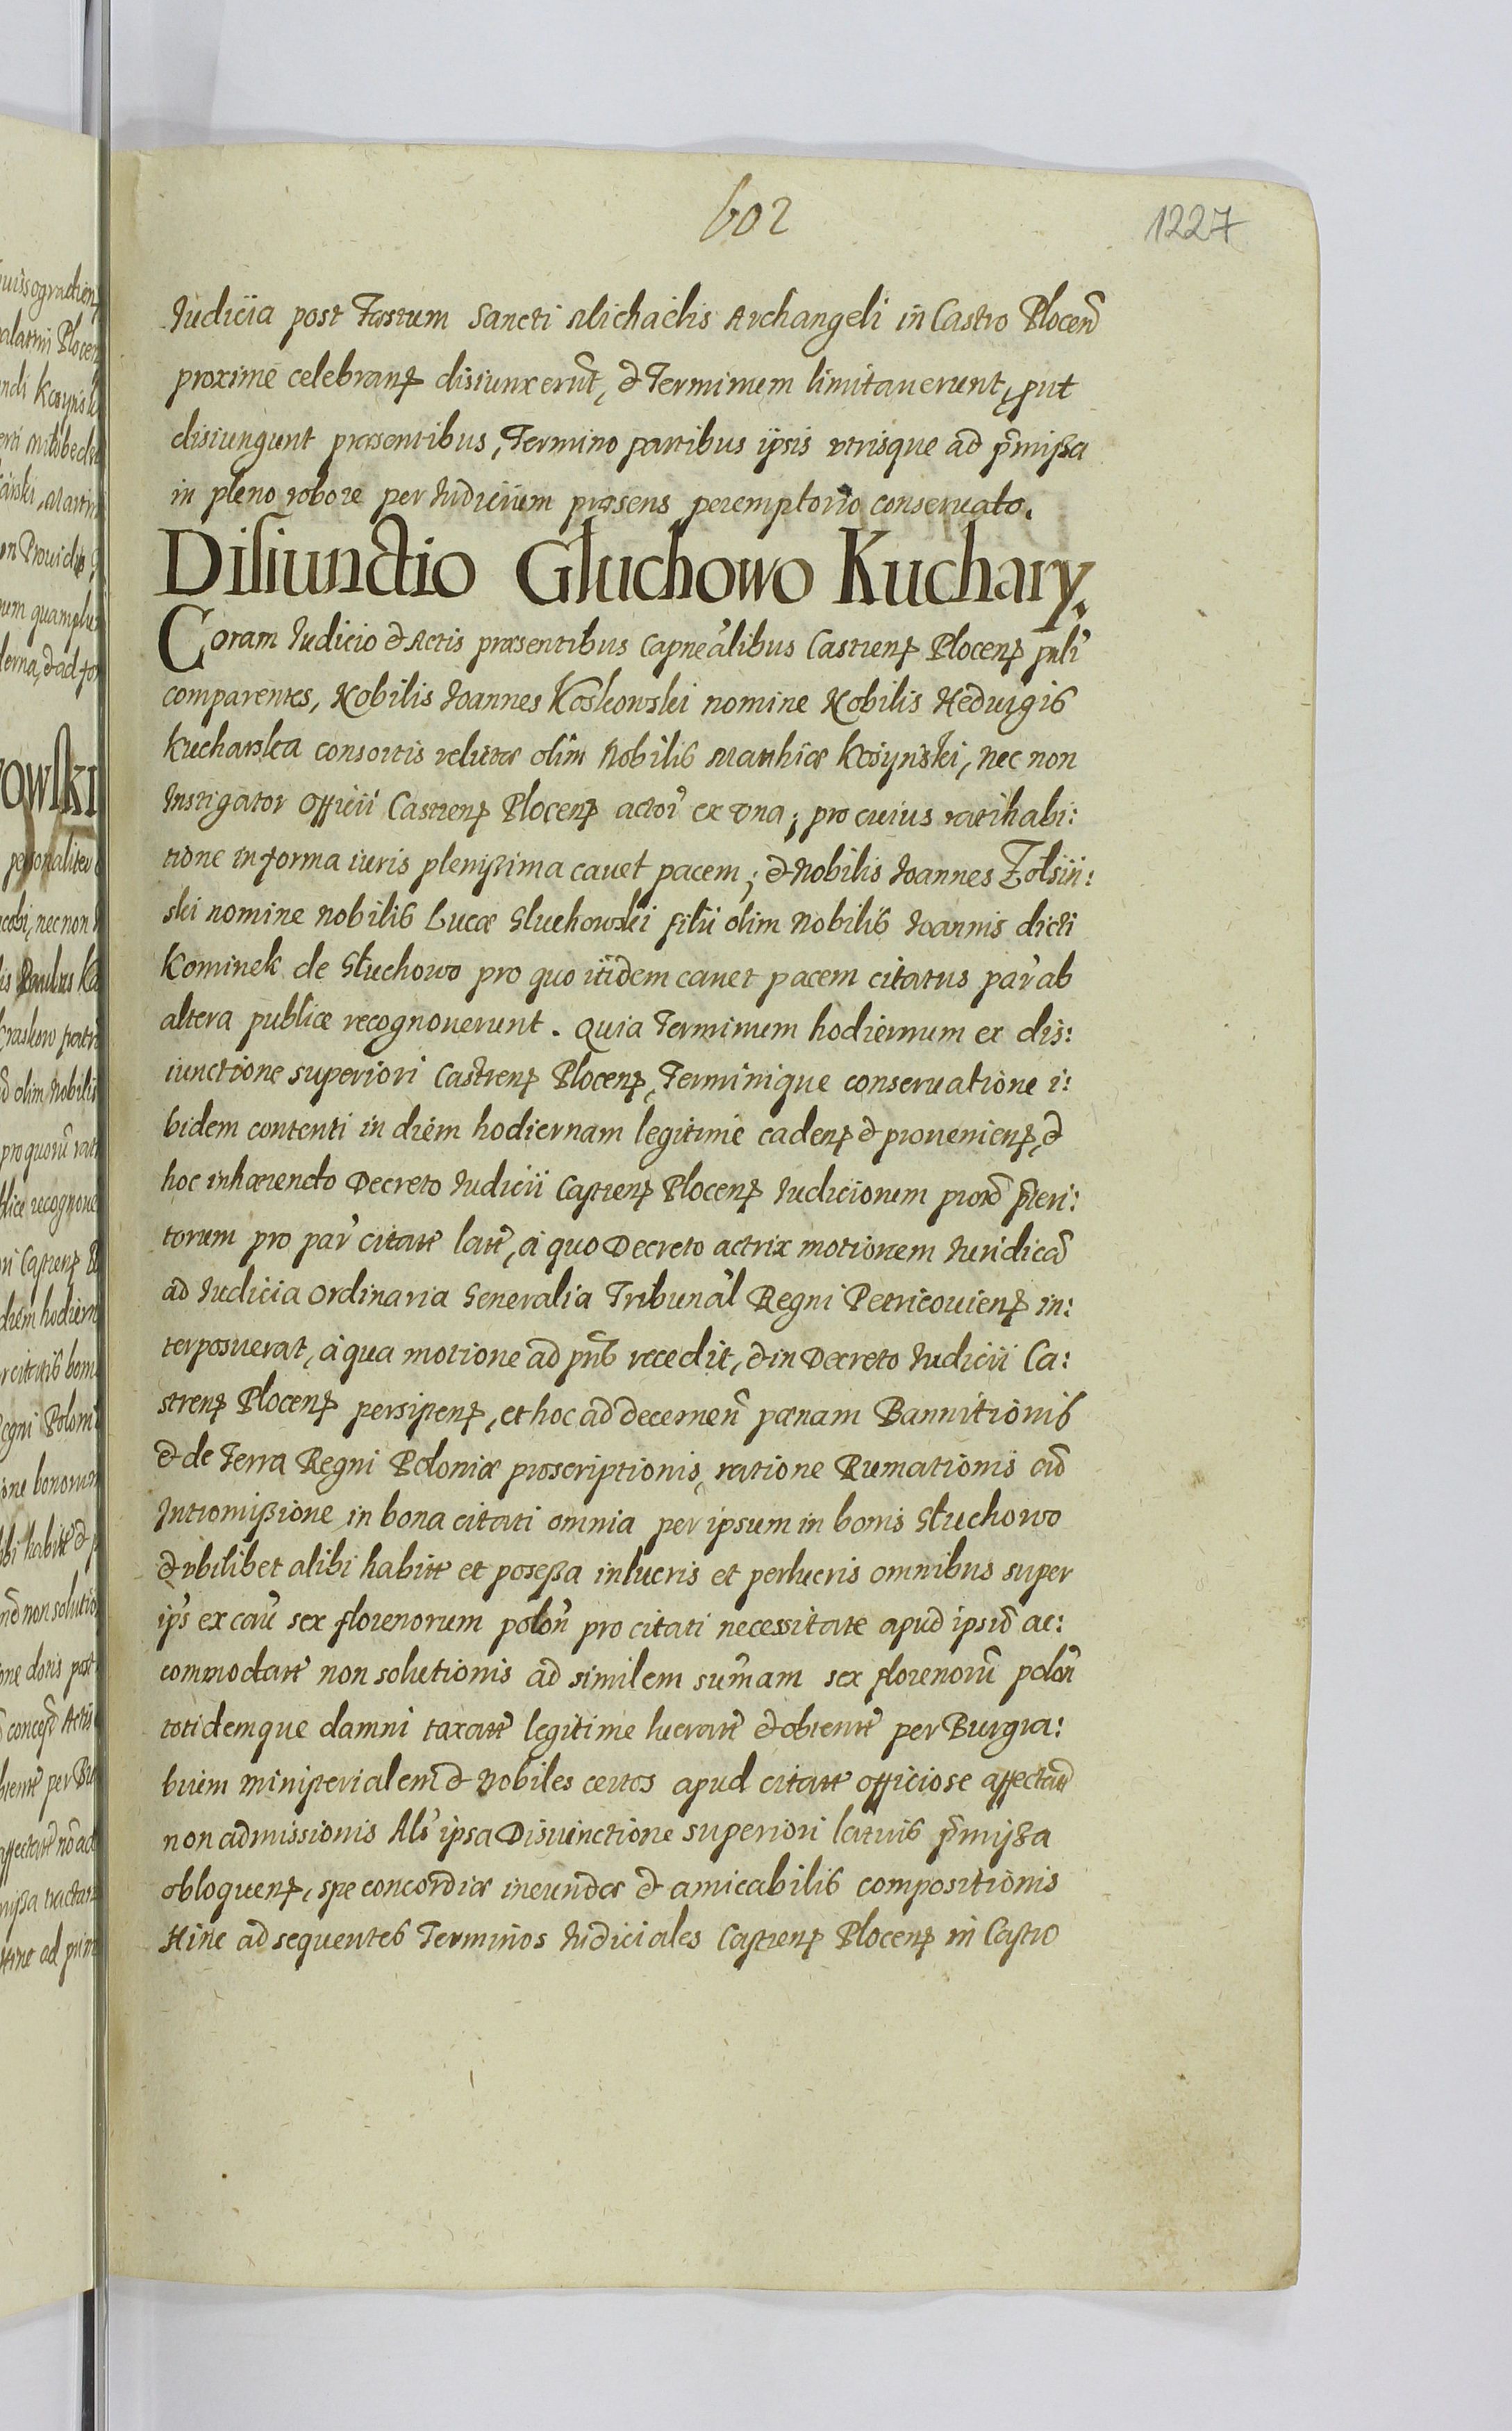 602
1227
Iudicia post Fæstum Sancti Michaelis Archangeli in Castro Plocen̄
proxime celebranꝭ disiunxerūt, & Terminum limitauerunt, ꝓut
disiungunt præsentibus, Termino partibus ipsis vtrisque ad p̄mißa
in pleno robore per Iudicium præsens peremptorio conseruato.
Disiunctio Głuchowo Kuchary.
Coram Iudicio & Actis præsentibus Capneálibus Castrenꝭ Plocenꝭ pnlr̃
comparentes, Nobilis Ioannes Koskowski nomine Nobilis Heduigis
Kucharska consortis relictæ olim Nobilis Matthiæ Kosynski, nec non
Instigator Officii Castrenꝭ Plocenꝭ actor̃ ex vna; pro cuius ratihabi:
tione in forma iuris plenißima cauet pacem; & Nobilis Ioannes Zolsiń:
ski nomine Nobilis Lucæ Gluchowski filii olim Nobilis Ioannis dicti
Kominek de Głuchowo pro quo itidem cauet pacem citatus par̃ ab
altera publicæ recognouerunt. Quia Terminum hodiernum ex dis:
iunctione superiori Castrenꝭ Plocenꝭ, Terminique conseruatione i:
bidem contenti in diem hodiernam legitime cadenꝭ & prouenienꝭ, &
hoc inhærendo Decreto Iudicii Castrenꝭ Plocenꝭ Iudiciorum prox̄ p̄teri:
torum pro par̃ citatꝭ latꝭ, à quo Decreto actrix motionem Iuridicā
ad Iudicia Ordinaria Generalia Tribunál Regni Petricouienꝭ in:
terposuerat, à qua motione ad pn̄s recedit, & in Decreto Iudicii Ca:
strenꝭ Plocenꝭ persistenꝭ, et hoc ad decernen̄ pænam Bannitionis
& de Terra Regni Poloniæ proscriptionis, ratione Rumationis cū
Intromißione in bona citati omnia per ipsum in bonis Głuchowo
& vbilibet alibi habitꝭ et poseßa in lucris et perlucris omnibus super
ip̃s ex caū sex florenorum polon̄ pro citati necessitate apud ipsū ac:
commodatꝭ non solutionis ad similem sum̄am sex florenorū polon̄
totidemque damni taxatꝭ legitime lucratꝭ & obtentꝭ per Burgra:
bium Ministerialem & Nobiles certos apud citatꝭ officiose affectatꝭ
non admissionis Als̃ ipsa Disiunctione superiori latius p̄mißa
obloquenꝭ, spe concordiæ ineundæ & amicabilis compositionis
Hinc ad sequentes Terminos Iudiciales Castrenꝭ Plocenꝭ in Castro